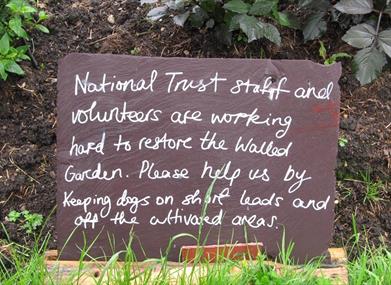 National Trust staff and
volunteers are working
hard to restore the Walled
Garden. Please help us by
Keeping dogs on short leads and
off the cultivated areas.